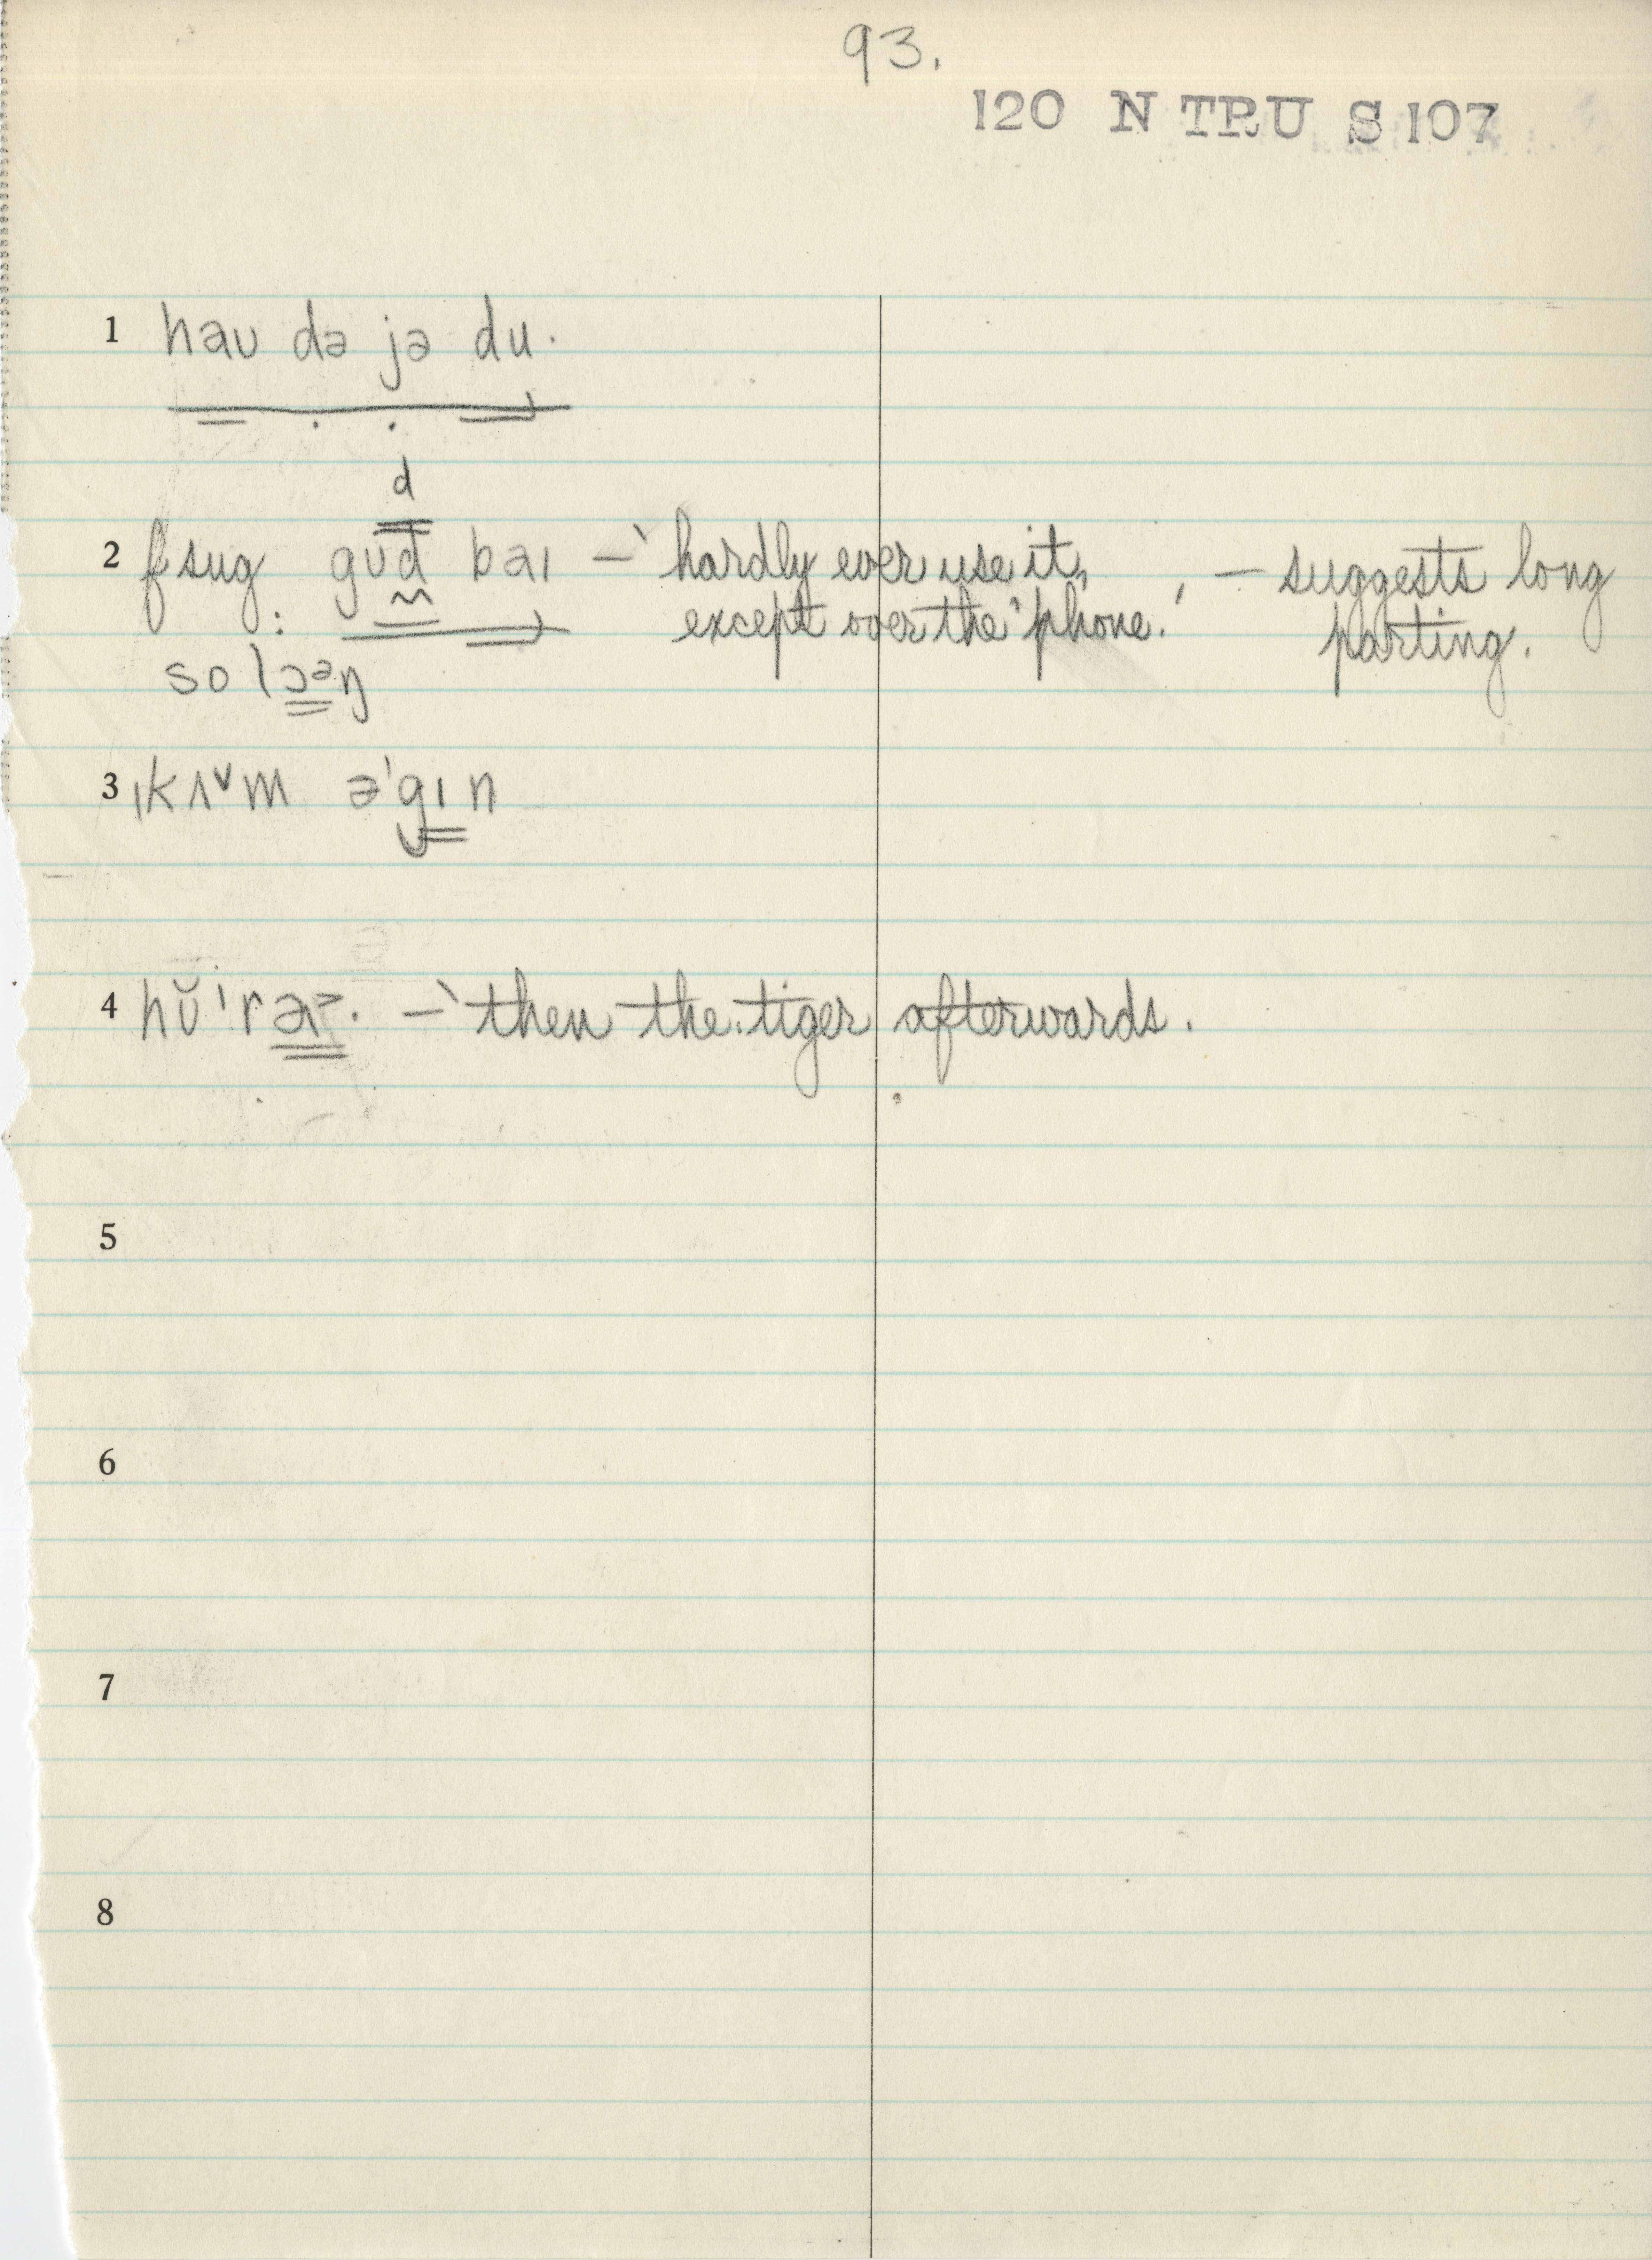 93.
120 N TRU S 107
1 hau də jə du.
d
2 f sug: gud bai — 'hardly ever use it, — suggests long
except over the 'phone.' parting.
so lɔᵊŋ
3 ɪkʌ˅m ə'gɪn
4 hŭ'r — 'then the tiger afterwards.
5
6
7
8